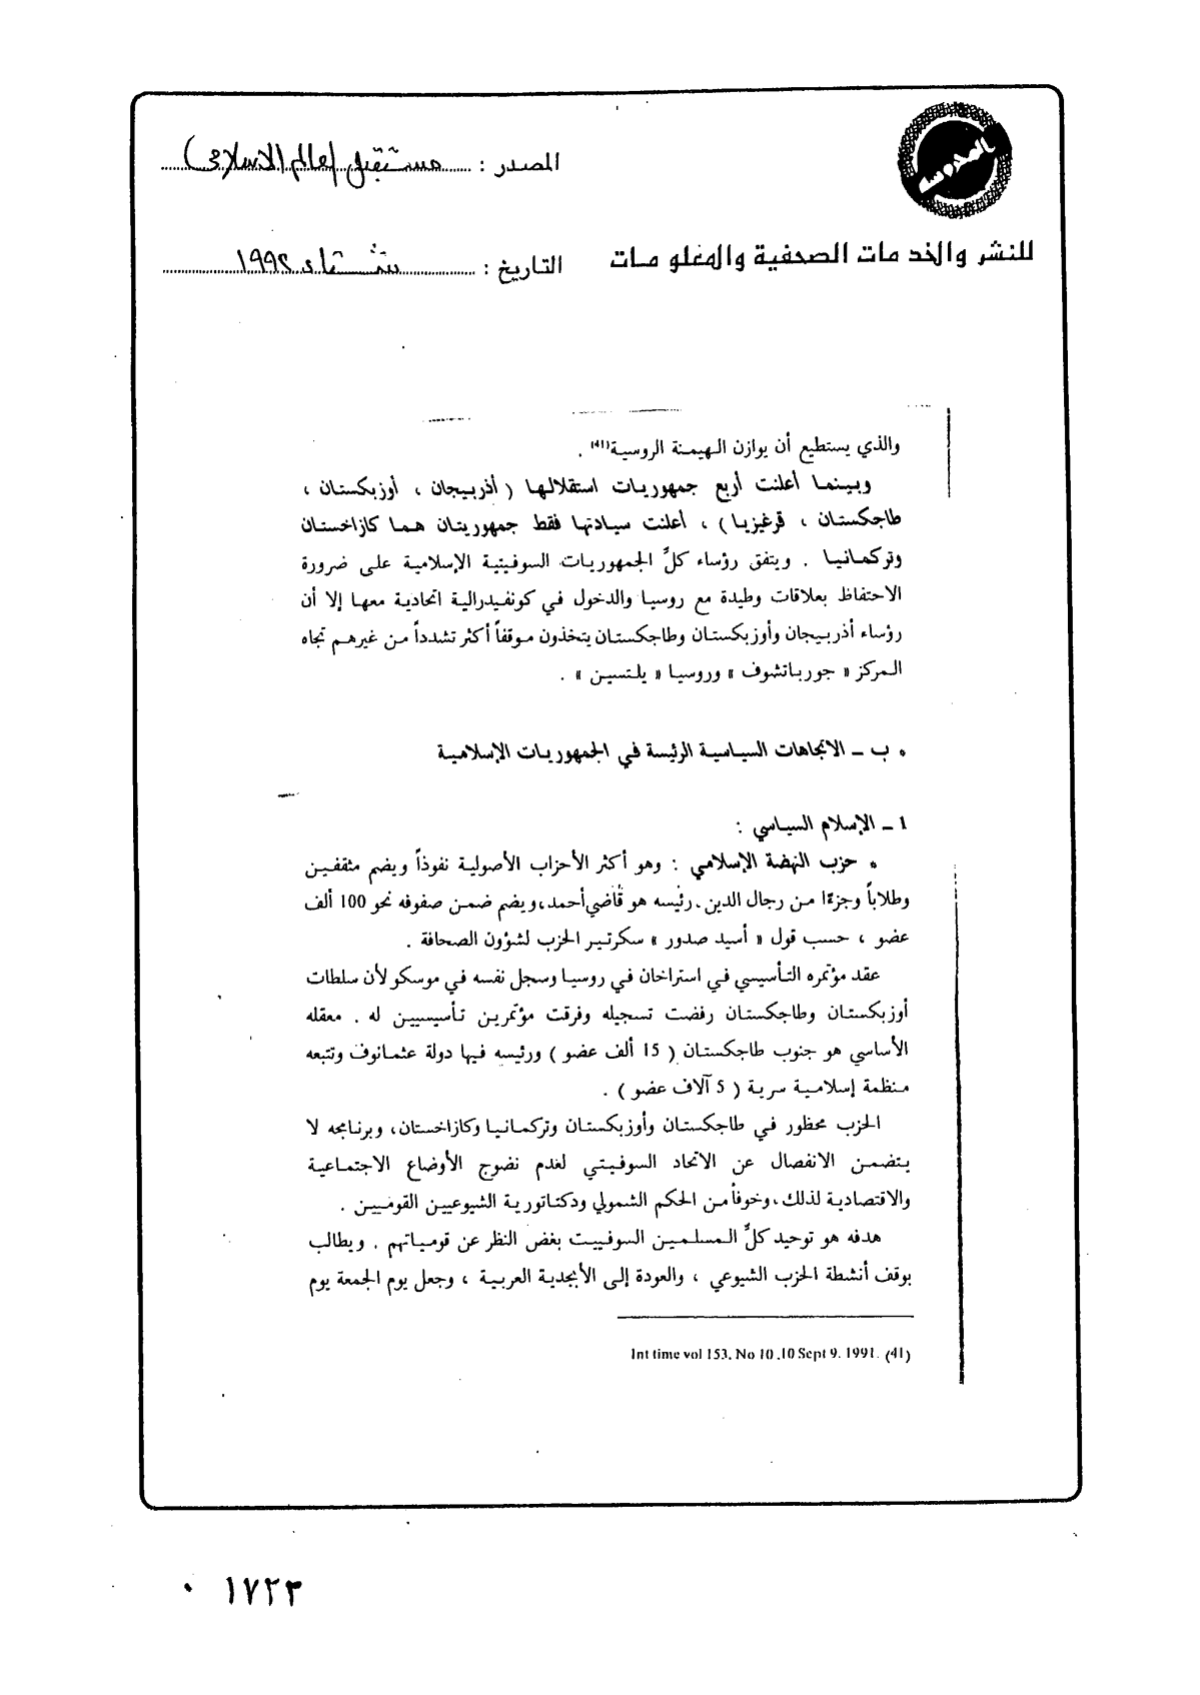 المصدر : مستقبل العالم الاسلامي
للنشر والخدمات الصحفية والمعلومات
التاريخ : شتاء ١٩٩٢
والذي يستطيع أن يوازن الهيمنة الروسية(41) .
وبينما أعلنت أربع جمهوريات استقلالها ( أذربيجان ، أوزبكستان ،
طاجكستان ، قرغيزيا ) ، أعلنت سيادتها فقط جمهوريتان هما كازاخستان
وتركمانيا . ويتفق رؤساء كلِّ الجمهوريات السوفيتية الإسلامية على ضرورة
الاحتفاظ بعلاقات وطيدة مع روسيا والدخول في كونفيدرالية اتحادية معها إلا أن
رؤساء أذربيجان وأوزبكستان وطاجكستان يتخذون موقفاً أكثر تشدداً من غيرهم تجاه
المركز « جورباتشوف » وروسيا « يلتسين » .
• ب – الاتجاهات السياسية الرئيسة في الجمهوريات الإسلامية
1 – الإسلام السياسي :
• حزب النهضة الإسلامي : وهو أكثر الأحزاب الأصولية نفوذاً ويضم مثقفين
وطلاباً وجزءًا من رجال الدين. رئيسه هو قاضي أحمد، ويضم ضمن صفوفه نحو 100 ألف
عضو ، حسب قول « أسيد صدور » سكرتير الحزب لشؤون الصحافة .
عقد مؤتمره التأسيسي في استراخان في روسيا وسجل نفسه في موسكو لأن سلطات
أوزبكستان وطاجكستان رفضت تسجيله وفرقت مؤتمرين تأسيسيين له . معقله
الأساسي هو جنوب طاجكستان ( 15 ألف عضو ) ورئيسه فيها دولة عثمانوف وتتبعه
منظمة إسلامية سرية ( 5 آلاف عضو ) .
الحزب محظور في طاجكستان وأوزبكستان وتركمانيا وكازاخستان، وبرنامجه لا
يتضمن الانفصال عن الاتحاد السوفيتي لعدم نضوج الأوضاع الاجتماعية
والاقتصادية لذلك، وخوفاً من الحكم الشمولي ودكتاتورية الشيوعيين القوميين .
هدفه هو توحيد كلِّ المسلمين السوفييت بغض النظر عن قومياتهم . ويطالب
بوقف أنشطة الحزب الشيوعي ، والعودة إلى الأبجدية العربية ، وجعل يوم الجمعة يوم
Int time vol 153. No 10 .10 Sept 9. 1991. (41)
٠ ١٧٢٣